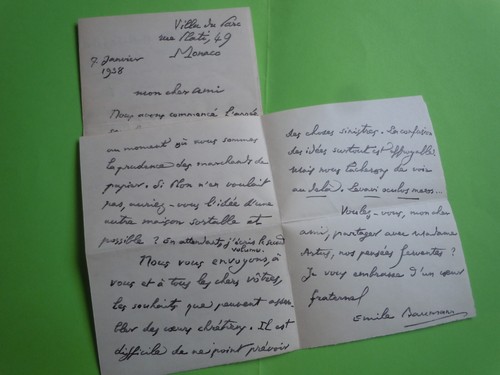 Villa du Parc
rue Plati, 49
Monaco
7 Janvier
1938
mon cher ami
Nous avons commencé l'année
au moment où nous sommes
la prudence des marchands de
papier. Si Plon n'en voulait
pas, auriez-vous l'idée d'une
autre maison sortable et
possible ? En attendant, j'écris le second
volume.
Nous vous envoyons, à
vous et à tous les chers vôtres,
les souhaits que peuvent assem
bler des cœurs chrétiens. Il est
difficile de ne point prévoir
des choses sinistres. La confusion
des idées surtout est effroyable.
Mais nous tâcherons de voir
au delà. Levavi oculos meos...
Voulez-vous, mon cher
ami, partager avec madame
nos pensées ferventes ?
Je vous embrasse d'un cœur
fraternel
Emile Baumann